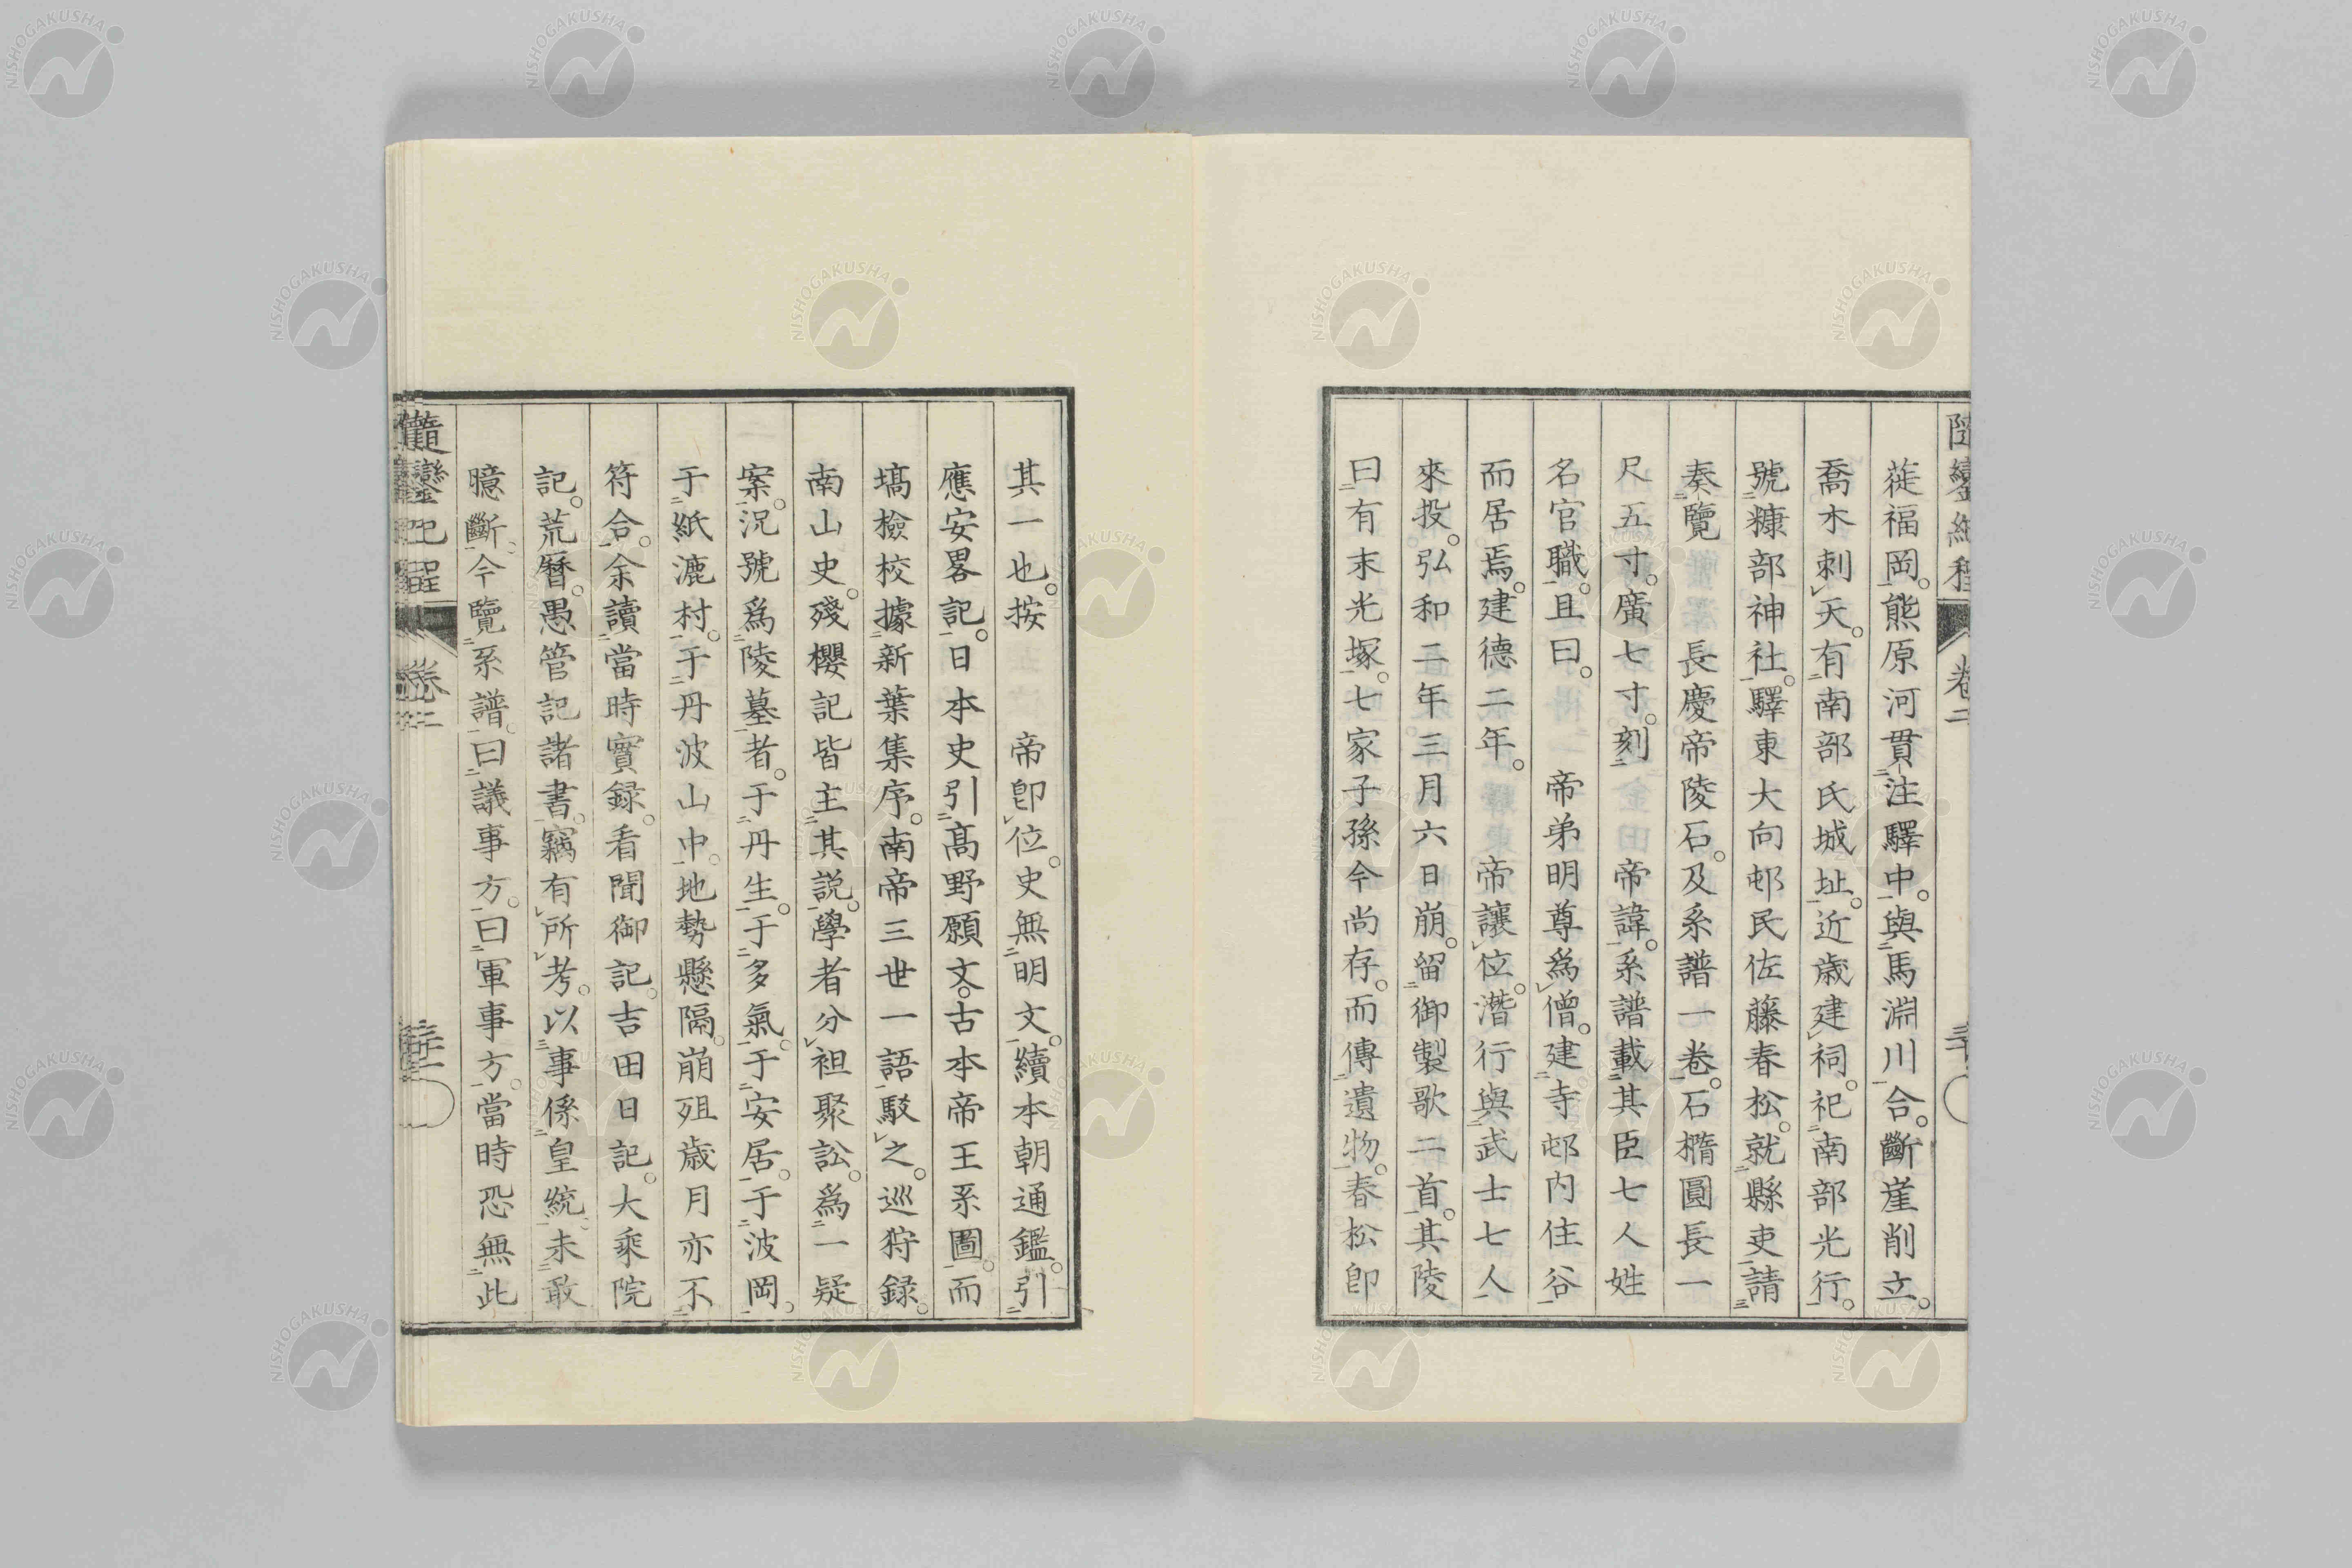 蓰福岡。熊原河貫注驛中。與馬淵川合。斷崖削立。
喬木刺天。有南部氏城址。近歳建祠。祀南部光行。
號糠部神社。驛東大向邨民佐藤春松。就縣吏請
奏覽　長慶帝陵石。及系譜一卷。石橢圓長一
尺五寸。廣七寸。刻　帝諱。系譜載其臣七人姓
名官職。且曰。　帝弟明尊爲僧。建寺邨內住谷
而居焉。建德二年。　帝讓位。潛行與武士七人
來投。弘和二年三月六日崩。留御製歌二首。其陵
曰有末光塚。七家子孫今尚存。而傳遺物。春松卽
其一也。按　帝卽位。史無明文。續本朝通鑑。引
應安畧記。日本史引高野願文。古本帝王系圖。而
塙檢校據新葉集序。南帝三世一語駁之。巡狩錄。
南山史。殘櫻記皆主其說。學者分袒聚訟。爲一疑
案。況號爲陵墓者。于丹生。于多氣。于安居。于波岡。
于紙漉村。于丹波山中。地勢懸隔。崩殂歳月亦不
符合。余讀當時實録。看聞御記。吉田日記。大乘院
記。荒曆。愚管記諸書。竊有所考。以事係皇統。未敢
臆斷。今覽系譜。曰議事方。曰軍事方。當時恐無此
卷二